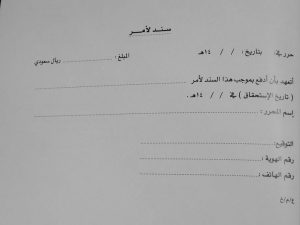 سند لأمر
حرر في: بتاريخ: / / ١٤هـ المبلغ: ريال سعودي
أتعهد بأن أدفع بموجب هذا السند لأمر
( تاريخ الإستحقاق ) في / / ١٤هـ.
إسم المحرر:
التوقيع:
رقم الهوية:
رقم الهاتف:
ع/م/خ